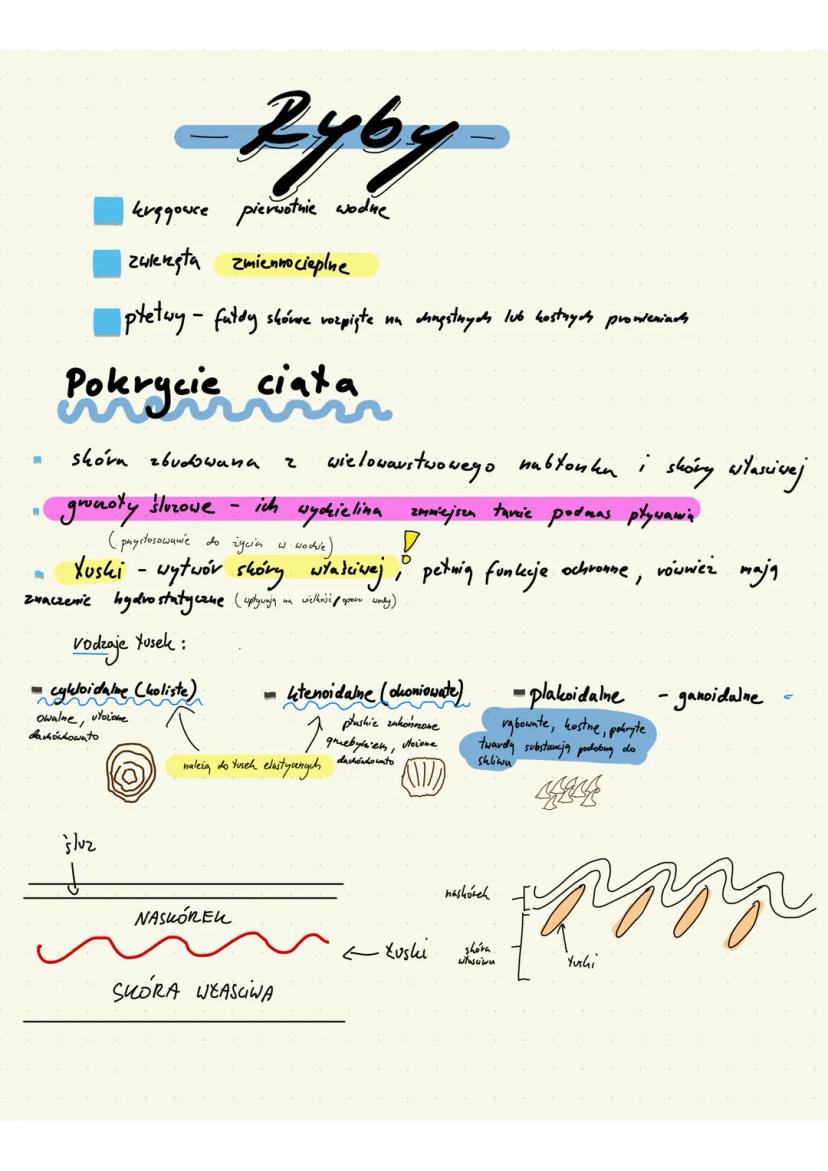 Ryby
kręgowce pierwotnie wodne
zwierzęta zmiennocieplne
płetwy - fałdy skórne rozpięte na chrzęstnych lub kostnych promieniach
Pokrycie ciała
skóra zbudowana z wielowarstwowego nabłonka i skóry właściwej
gruczoły śluzowe - ich wydzielina zmniejsza tarcie podczas pływania
(przystosowanie do życia w wodzie)
łuski - wytwór skóry właściwej ! , pełnią funkcje ochronne, również mają
znaczenie hydrostatyczne (wpływają na wielkość/oporu wody)
rodzaje łusek:
cykloidalne (koliste)
owalne, ułożone
dachówkowato
ktenoidalne (okoniowate)
płaskie zakończone
grzebykiem, ułożone
dachówkowato
należą do łusek elastycznych
plakoidalne - ganoidalne
rąbowate, kostne, pokryte
twardą substancją podobną do
szkliwa
śluz
NASKÓREK
łuski
SKÓRA WŁAŚCIWA
naskórek
skóra
właściwa
łuski